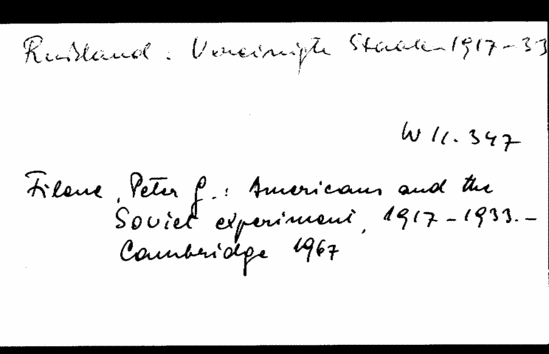 Rußland : Vereinigte Staaten 1917-33
W 11. 347
Filene, Peter G. : Americans and the
Soviet experiment, 1917-1933.-
Cambridge 1967